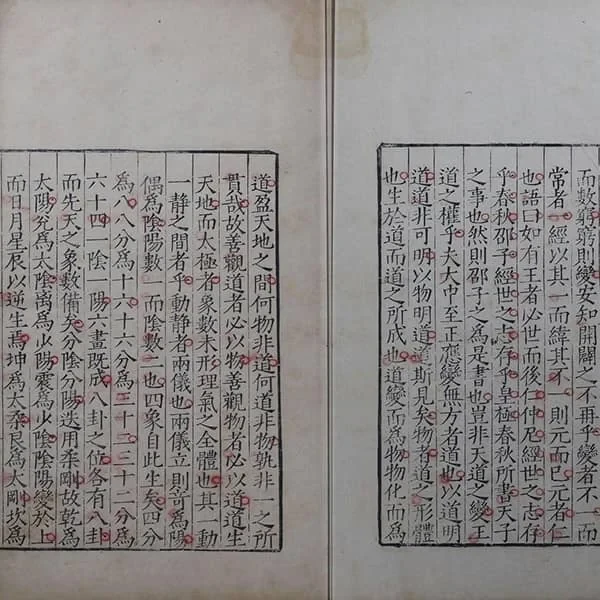 而數窮窮則變安知開闢之不再乎變者不一而
常者一經以其一而緯其不一則元而已元者仁
也語曰如有王者必世而後仁仲尼經世之志存
乎春秋邵子經世之志存乎皇極春秋所書天子
之事也然則邵子之爲是書也豈非天道之變王
道之權乎夫大中至正應變無方者道也以道明
道道非可明以物明道道斯見矣物者道之形體
也生於道而道之所成也道變而爲物物化而爲
道盈天地之間何物非道何道非物孰非一之所
貫哉故善觀道者必以物善觀物者必以道道生
天地而太極者象數未形理氣之全體也其一動
一静之間者乎動静者兩儀也兩儀立則竒爲陽
偶爲陰陽數一而陰數二也四象自此生矣四分
爲八八分爲十六十六分爲三十二三十二分爲
六十四一陰一陽六畫既成八卦之位各有八卦
而先天之象數備矣分陰分陽迭用柔剛故乾爲
太陽兌爲太陰離爲少陽震爲少陰陰陽變於上
而日月星辰以逆生焉坤爲太柔艮爲太剛坎爲